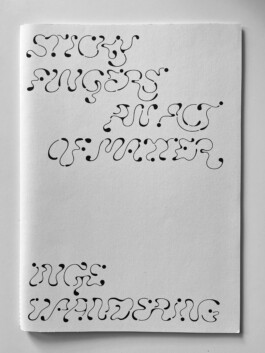 STICKY
FINGERS
AN ACT
OF MATTER
INGE
VAANDERING